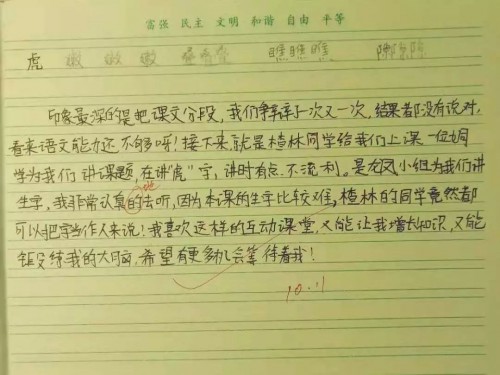 富强 民主 文明 和谐 自由 平等
虎 嗷 嗷 嗷 瞧瞧瞧
印象最深的是把课文分段，我们争辩了一次又一次，结果都没有说对，
看来语文能力还不够呀！接下来就是楂林同学给我们上课一位同
学为我们讲课题，在讲"虎"字，讲时有点不流利。是龙凤小组为我们讲
生字，我非常认真的去听，因为本课的生字比较难，楂林的同学竟然都
地
可以把字当作人来说！我喜欢这样的互动课堂，又能让我增长知识，又能
锻练我的大脑，希望有更多机会等待着我！
10.11